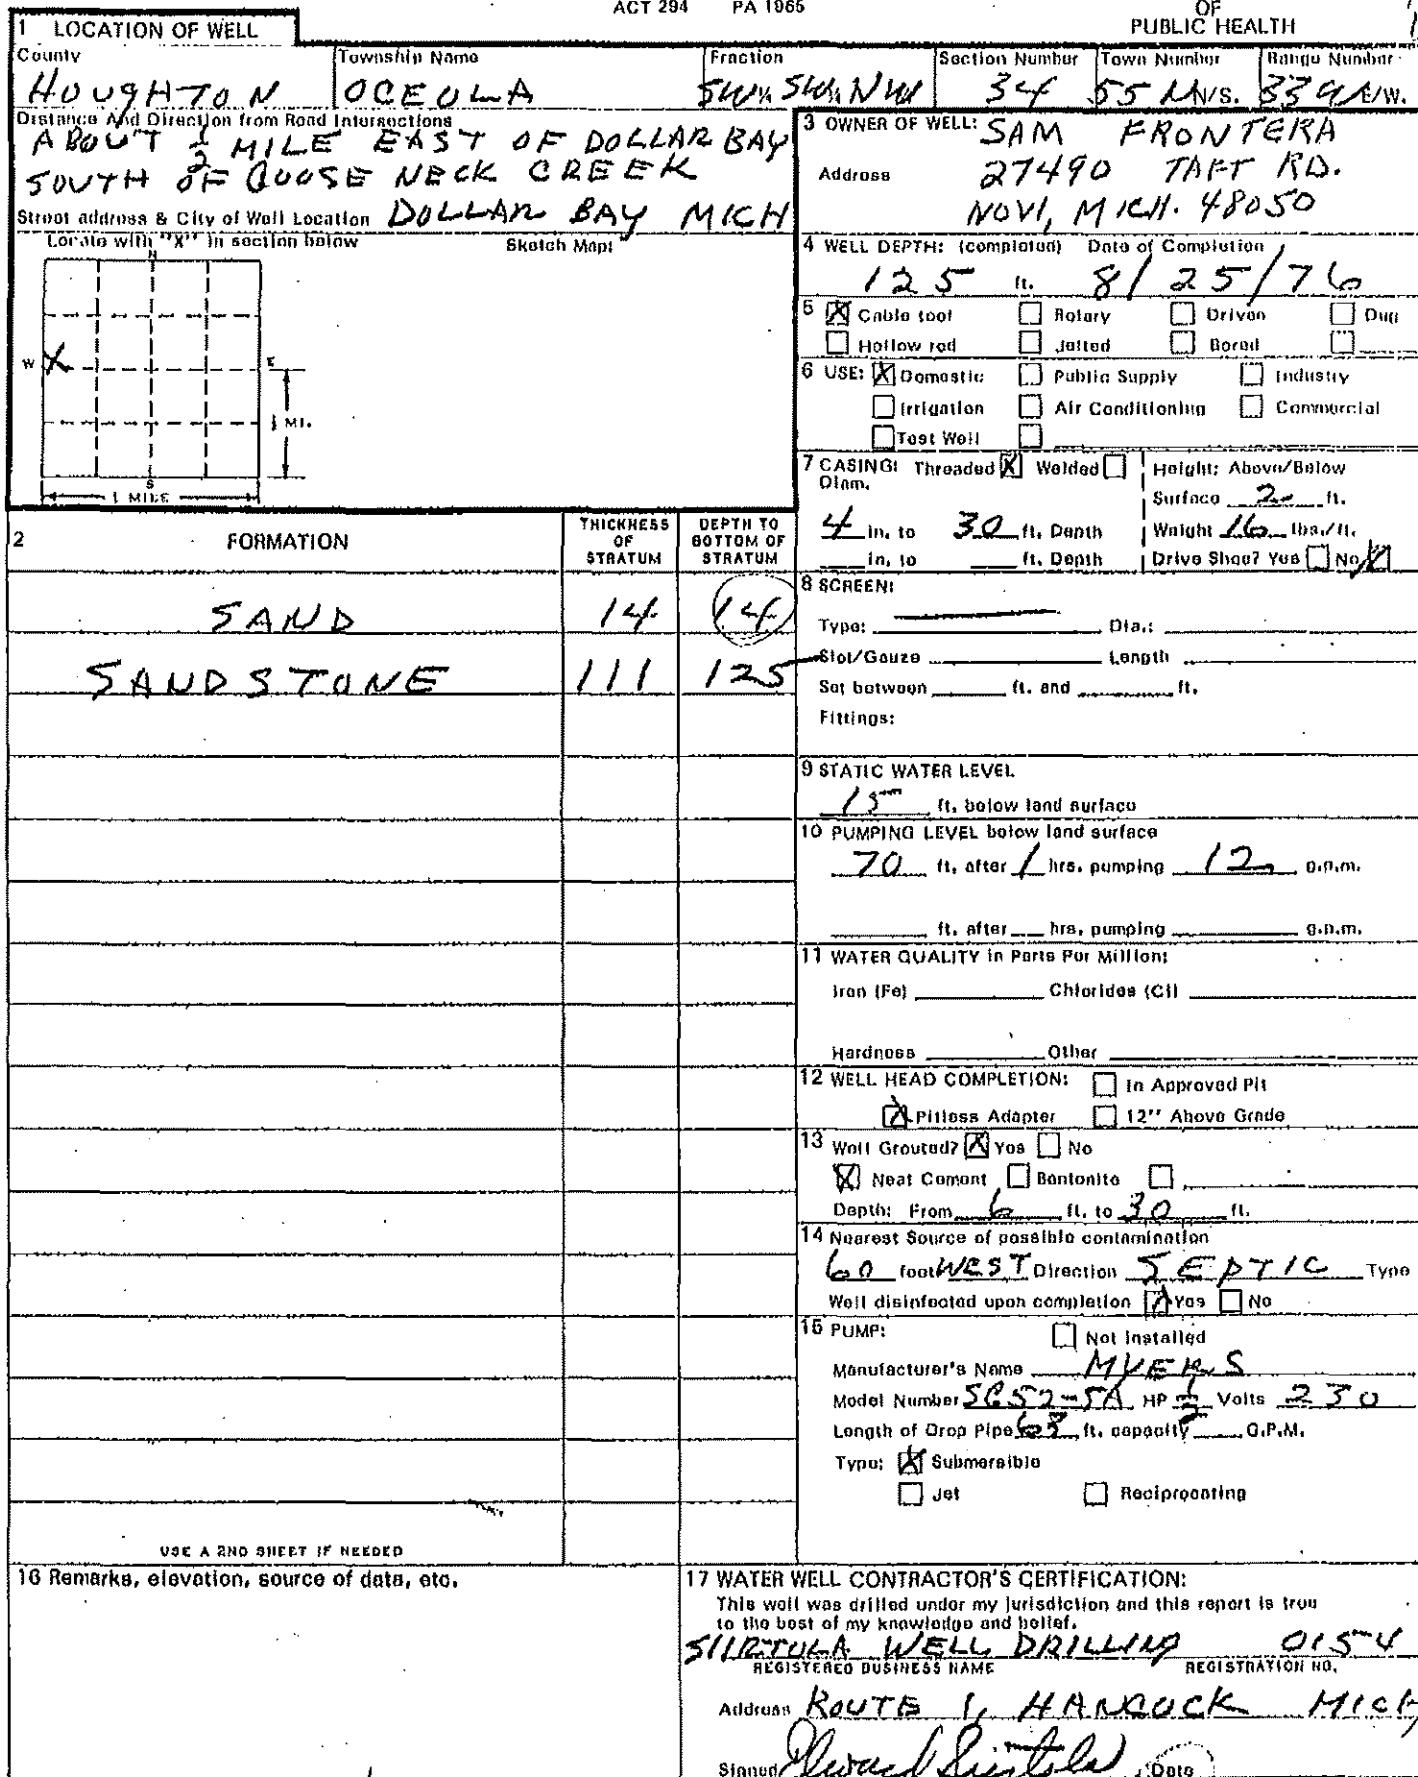 ACT 294 PA 1965
OF
PUBLIC HEALTH
1 LOCATION OF WELL
County
HOUGHTON
Township Name
OCEOLA
Fraction
SW¼ SW¼ NW
Section Number
34
Town Number
55 N/S.
Range Number
33 E/W.
Distance And Direction from Road Intersections
ABOUT 1/2 MILE EAST OF DOLLAR BAY
SOUTH OF GOOSE NECK CREEK
Street address & City of Well Location DOLLAR BAY MICH
Locate with "X" in section below
Sketch Map:
N
W X E
S
½ MI.
1 MILE
2 FORMATION
THICKNESS OF STRATUM
DEPTH TO BOTTOM OF STRATUM
SAND 14 14
SANDSTONE 111 125
USE A 2ND SHEET IF NEEDED
3 OWNER OF WELL: SAM FRONTERA
Address 27490 TAFT RD.
NOVI, MICH. 48050
4 WELL DEPTH: (completed) Date of Completion
125 ft. 8/25/76
5 X Cable tool Rotary Driven Dug
Hollow rod Jetted Bored
6 USE: X Domestic Public Supply Industry
Irrigation Air Conditioning Commercial
Test Well
7 CASING: Threaded X Welded
Diam.
4 in. to 30 ft. Depth
in. to ft. Depth
Height: Above/Below
Surface 2 ft.
Weight 16 lbs./ft.
Drive Shoe? Yes No X
8 SCREEN:
Type: Dia.:
Slot/Gauze Length
Set between ft. and ft.
Fittings:
9 STATIC WATER LEVEL
15 ft. below land surface
10 PUMPING LEVEL below land surface
70 ft. after 1 hrs. pumping 12 g.p.m.
ft. after hrs. pumping g.p.m.
11 WATER QUALITY in Parts Per Million:
Iron (Fe) Chlorides (Cl)
Hardness Other
12 WELL HEAD COMPLETION: In Approved Pit
X Pitless Adapter 12" Above Grade
13 Well Grouted? X Yes No
X Neat Cement Bentonite
Depth: From 6 ft. to 30 ft.
14 Nearest Source of possible contamination
60 feet WEST Direction SEPTIC Type
Well disinfected upon completion X Yes No
15 PUMP: Not Installed
Manufacturer's Name MYERS
Model Number HP 1/2 Volts 230
Length of Drop Pipe ft. capacity G.P.M.
Type: X Submersible
Jet Reciprocating
16 Remarks, elevation, source of data, etc.
17 WATER WELL CONTRACTOR'S CERTIFICATION:
This well was drilled under my jurisdiction and this report is true
to the best of my knowledge and belief.
SIIRTOLA WELL DRILLING 0154
REGISTERED BUSINESS NAME REGISTRATION NO.
Address ROUTE 1, HANCOCK MICH
Signed Date